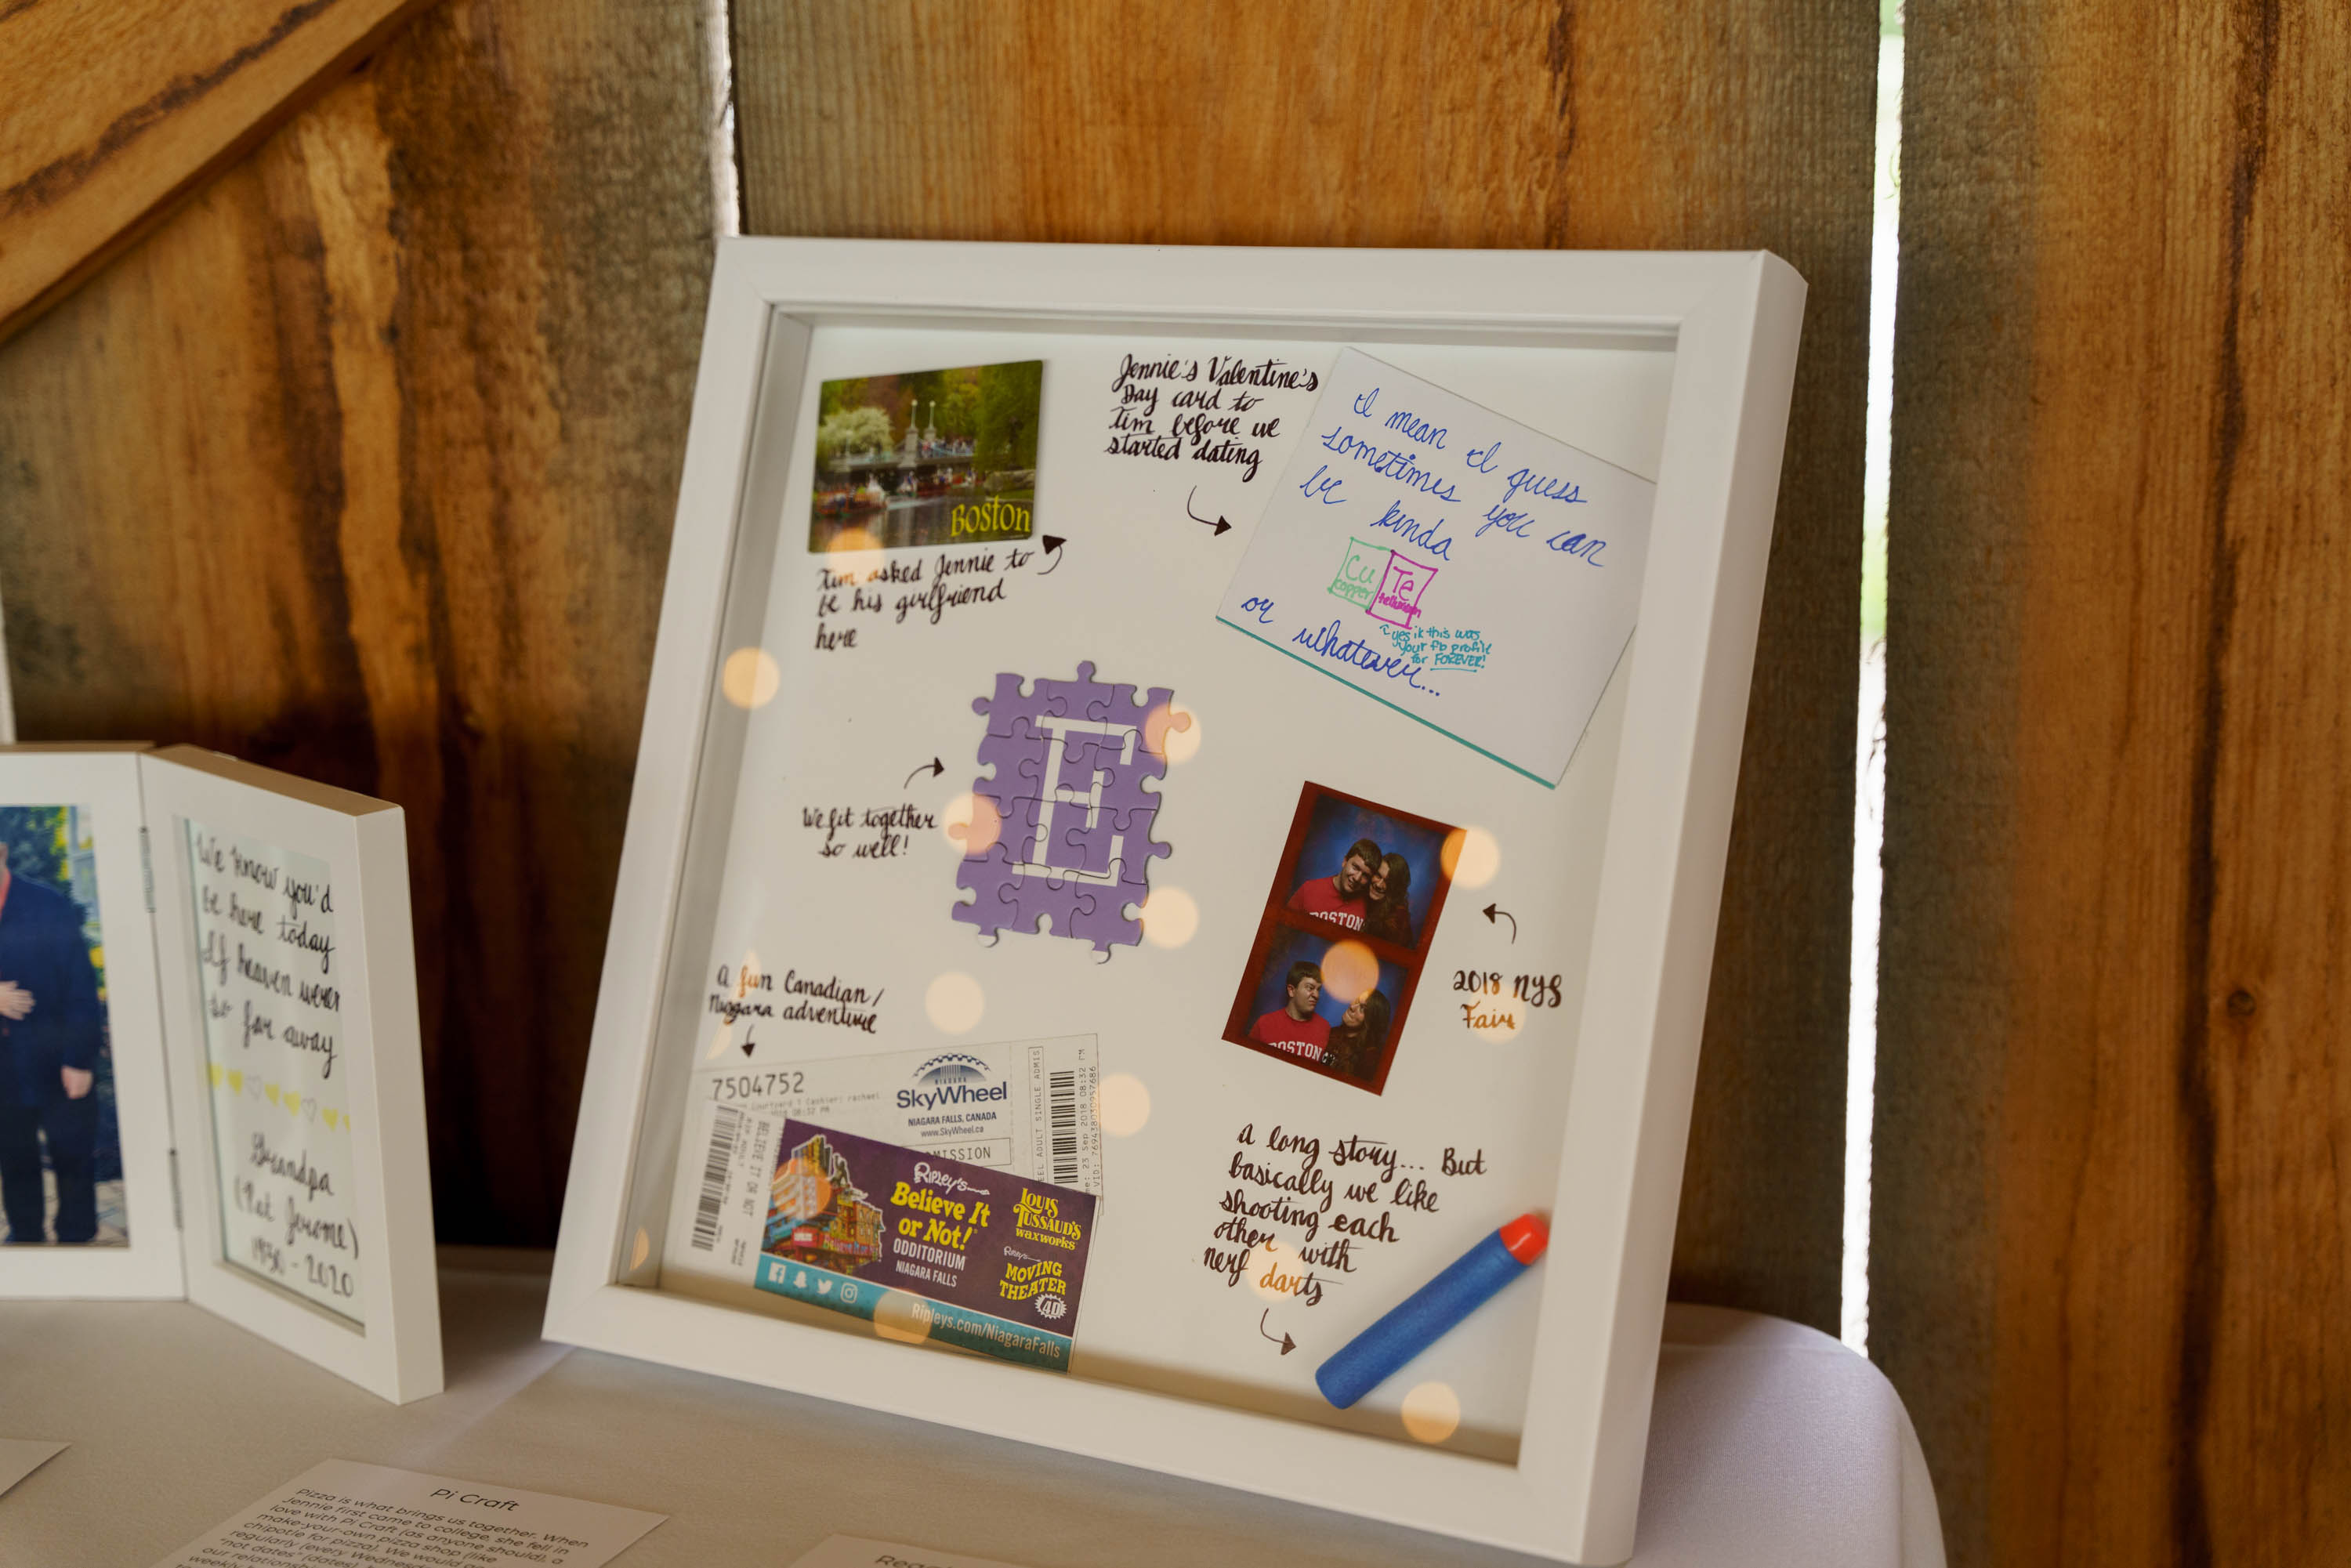 Boston
Tim asked Jennie to
be his girlfriend
here
Jennie's Valentine's
Day card to
Tim before we
started dating
I mean I guess
sometimes you can
be kinda
Cu Te
copper tellurium
↑ yes ik this was
your fb profile
for FOREVER!
or whatever...
We fit together
so well!
E
BOSTON
BOSTON
2018 NYS
Fair
A fun Canadian/
Niagara adventure
7504752
Courtyard 1 Cashier: rachael
08:32 PM
NIAGARA
SkyWheel
NIAGARA FALLS, CANADA
www.SkyWheel.ca
MISSION
EL ADULT SINGLE ADMIS
23 Sep 2018 08:32 PM
BELIEVE IT OR NOT
Ripley's
Believe It
or Not!
ODDITORIUM
NIAGARA FALLS
LOUIS
TUSSAUD'S
WAXWORKS
Ripley's
MOVING
THEATER
4D
Ripleys.com/NiagaraFalls
A long story... But
basically we like
shooting each
other with
nerf darts
We know you'd
be here today
If heaven weren
so far away
Grandpa
(Pat Jerome)
1930 - 2020
Pi Craft
Pizza is what brings us together. When
Jennie first came to college, she fell in
love with Pi Craft (as anyone should), a
make-your-own pizza shop (like
chipotle for pizza). We would
regularly (every Wednesd
"not dates" (dates)
our relations
weekly